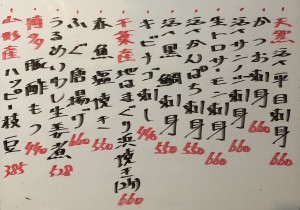 天然 活〆平目刺身 660
かつお刺身 660
活〆サンノジ刺身
生サーモン刺身 660
活〆かんぱち刺身 660
活〆黒鯛刺身 550
キビナゴ刺し 440
千葉産 地はまぐり浜焼き(2ヶ) 660
春魚塩焼き 550
ふぐ唐揚げ 660
うるめいわし生姜煮 528
博多 豚酢もつ 440
山形産 ハッピー枝豆 385